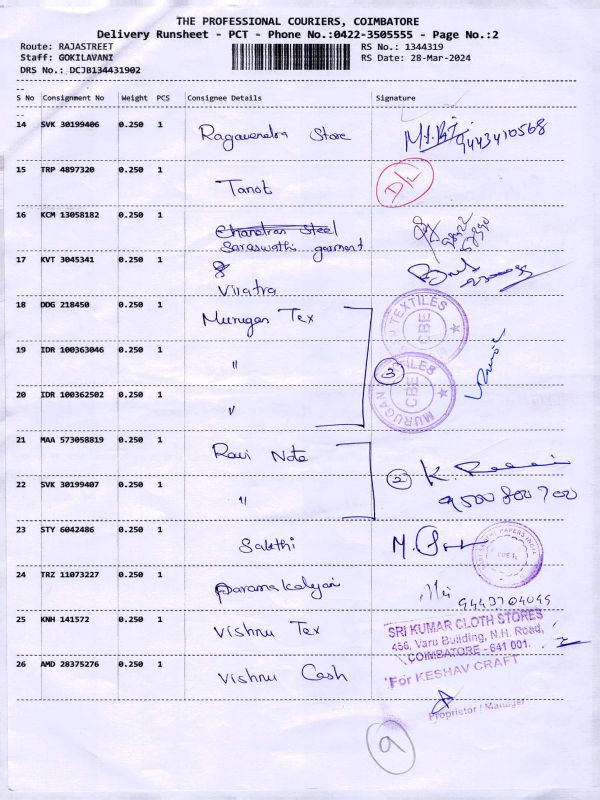 THE PROFESSIONAL COURIERS, COIMBATORE
Delivery Runsheet - PCT - Phone No.:0422-3505555 - Page No.:2
Route: RAJASTREET RS No.: 1344319
Staff: GOKILAVANI RS Date: 28-Mar-2024
DRS No.: DCJB134431902
S No Consignment No Weight PCS Consignee Details Signature
14 SVK 30199406 0.250 1 Ragavendra Store 9443410568
15 TRP 4897320 0.250 1 Tanot D/L
16 KCM 13058182 0.250 1 Chandran Steel
Saraswathi garment
17 KVT 3045341 0.250 1 Viratra
18 DDG 218450 0.250 1 Murugan Tex TEXTILES CBE
19 IDR 100363046 0.250 1 " 3
20 IDR 100362502 0.250 1 " MURUGAN TILES CBE
21 MAA 573058819 0.250 1 Ravi Note
22 SVK 30199407 0.250 1 " 2 9500 800 700
23 STY 6042486 0.250 1 Sakthi PAPERS INDIA
24 TRZ 11073227 0.250 1 Paramakalyani 9443704049
25 KNH 141572 0.250 1 Vishnu Tex
SRI KUMAR CLOTH STORES
456, Varu Building, N.H. Road,
COIMBATORE - 641 001.
26 AMD 28375276 0.250 1 Vishnu Cash
For KESHAV CRAFT
Proprietor / Manager
9